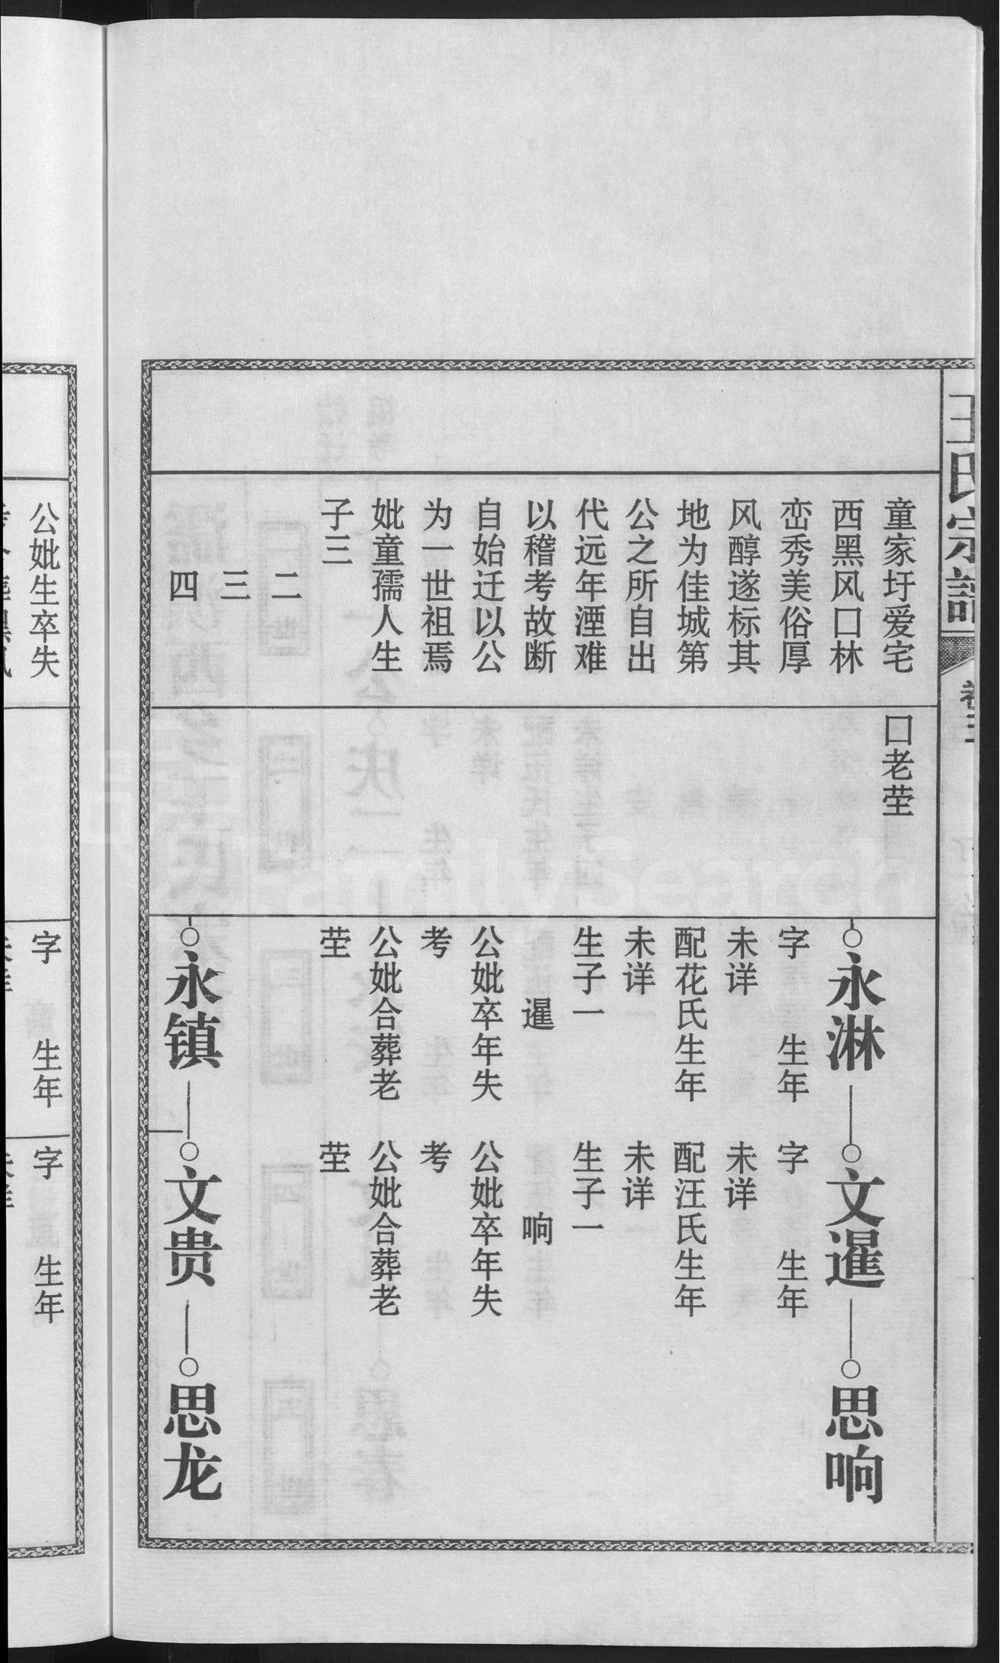 王氏宗譜
卷三
童家圩爱宅
西黑风口林
峦秀美俗厚
风醇遂标其
地为佳城第
公之所自出
代远年湮难
以稽考故断
自始迁以公
为一世祖焉
妣童孺人生
子三
二
三
四
口老茔
永淋
字 生年
未详
配花氏生年
未详
生子一
暹
公妣卒年失
考
公妣合葬老
茔
永镇
文暹
字 生年
未详
配汪氏生年
未详
生子一
响
公妣卒年失
考
公妣合葬老
茔
文贵
思响
思龙
公妣生卒失
字 生年
字 生年